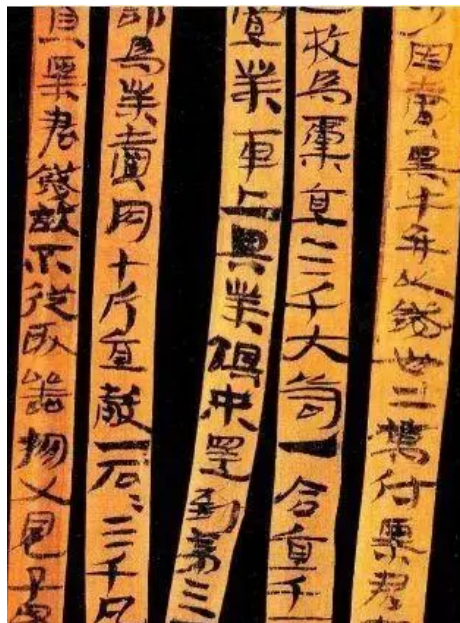 少因賣黑牛并以錢卅二萬付粟君
一枚為橐直三千大笥一合直千一
置業車上與業俱來還到第三
部為業賣肉十斤直穀一石〻三千凡
負粟君錢故不從取器物又恩子男